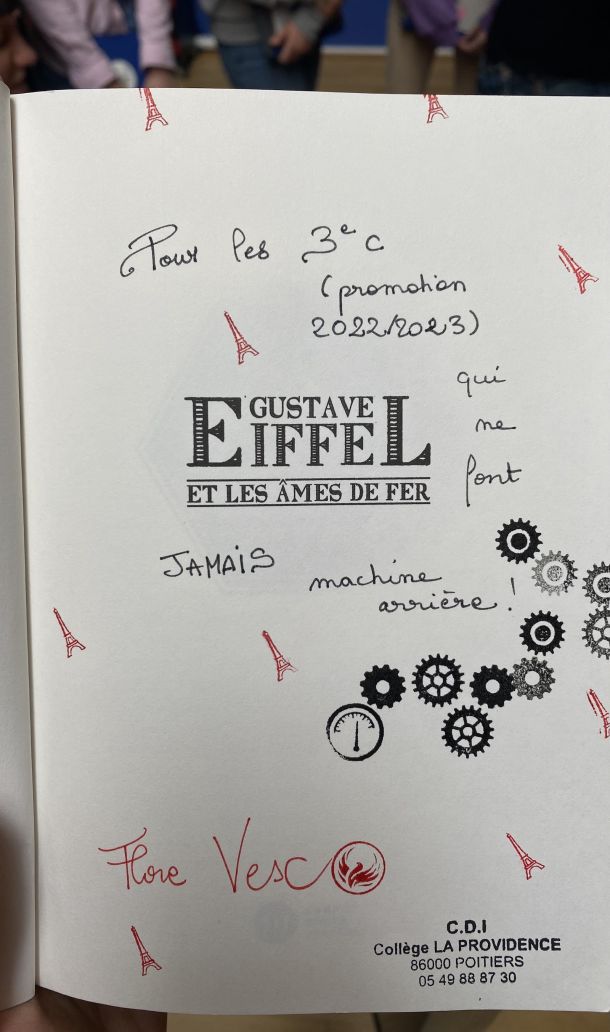 Pour les 3e C
(promotion
2022/2023)
qui
ne
font
GUSTAVE
EIFFEL
ET LES ÂMES DE FER
JAMAIS machine
arrière !
Flore Vesco
C.D.I
Collège LA PROVIDENCE
86000 POITIERS
05 49 88 87 30